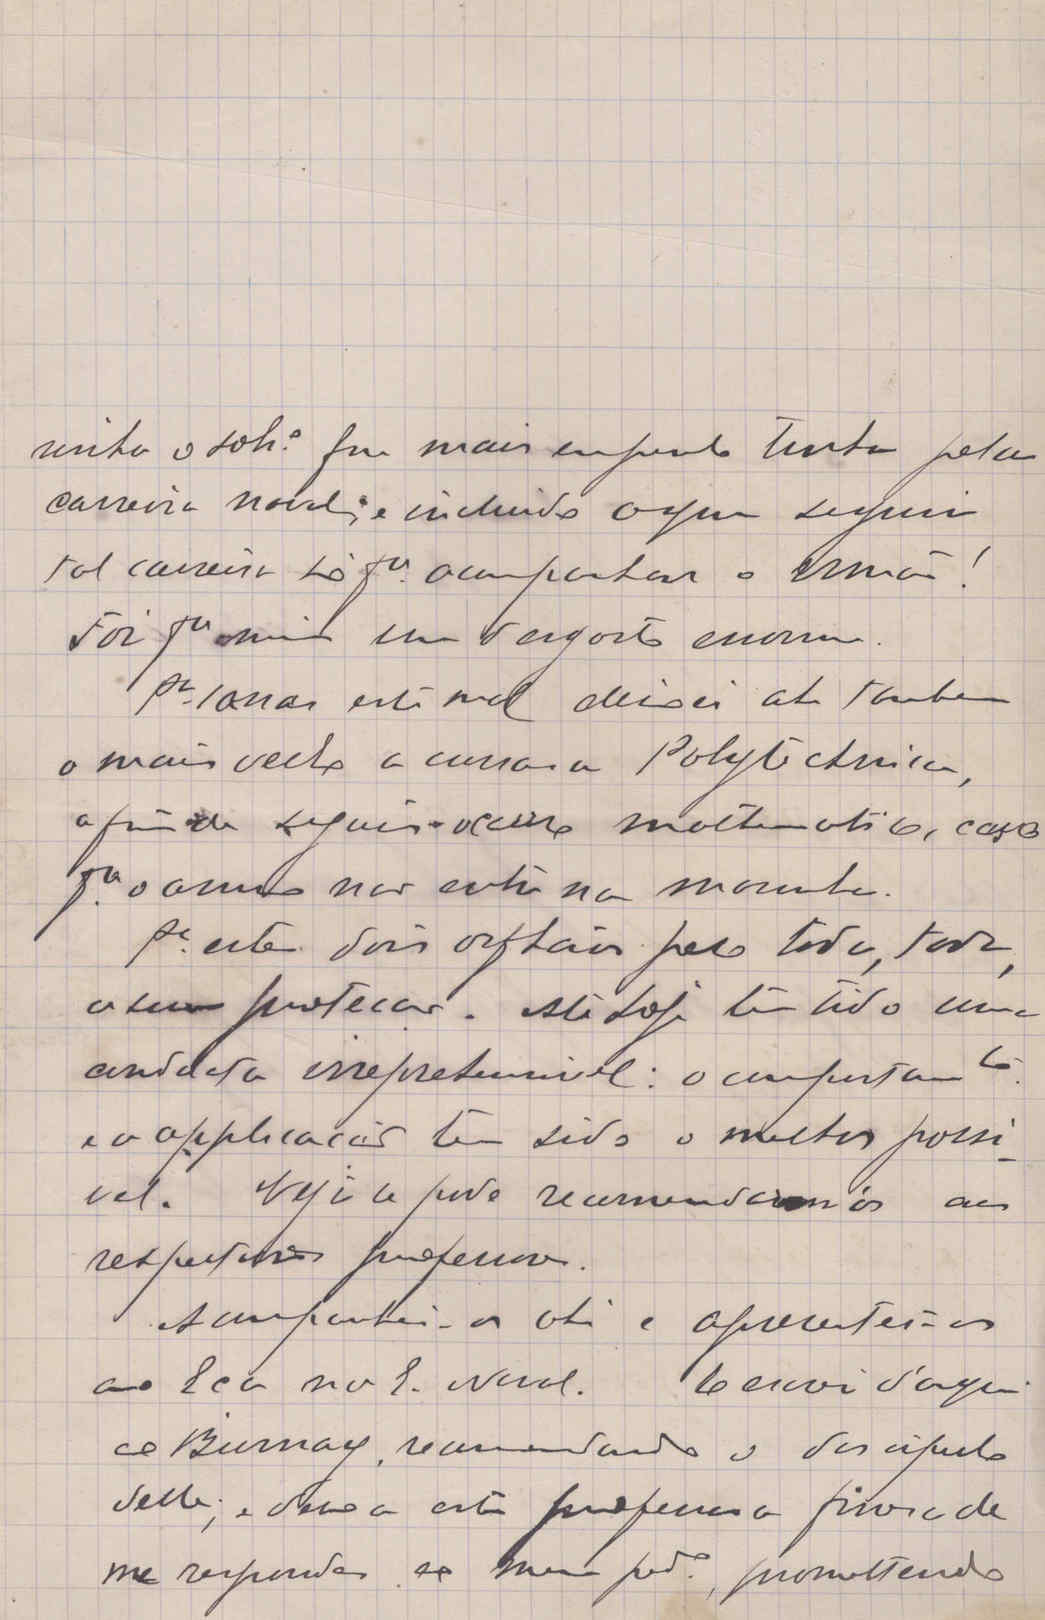 o sobr.º que mais empenho tinha pela
carreira naval; e incluido o que seguiu
tal carreira só p.ª acompanhar o irmão!
Foi p.ª mim um desgosto enorme.
P.ª está mal deixei ahi tambem
o mais velho a cursar a Polytechnica,
a fim de seguir o curso mathematico, caso
p.ª o anno não entre na marinha.
P.ª estes dois orphãos peço toda, toda,
a sua protecção. Até hoje têm tido uma
conducta irreprehensivel: o comportam.to
e a applicação têm sido o melhor possi-
vel. Veja se pode recommendar-m'os aos
respectivos professores.
Acompanhei-os ahi e apresentei-os
ao Eça na E. Naval. Escrevi d'aqui
ao Burnay, recommendando o discipulo
delle; e deveu a este professor a fineza de
me responder ao meu ped.º, promettendo